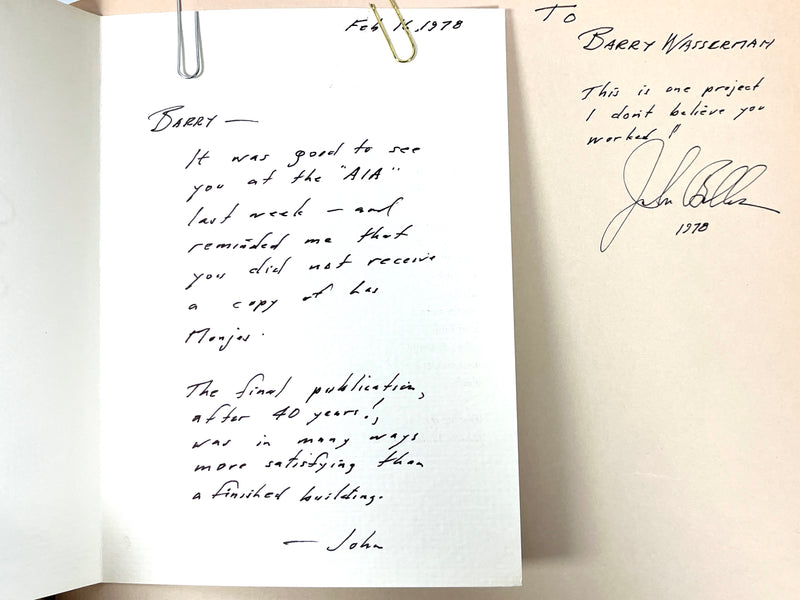 Feb 16, 1978
BARRY —
It was good to see
you at the "AIA"
last week — and
reminded me that
you did not receive
a copy of Las
Monjas.
The final publication,
after 40 years!,
was in many ways
more satisfying than
a finished building.
— John
TO
BARRY WASSERMAN
This is one project
I don't believe you
worked!!
John Bolles
1978